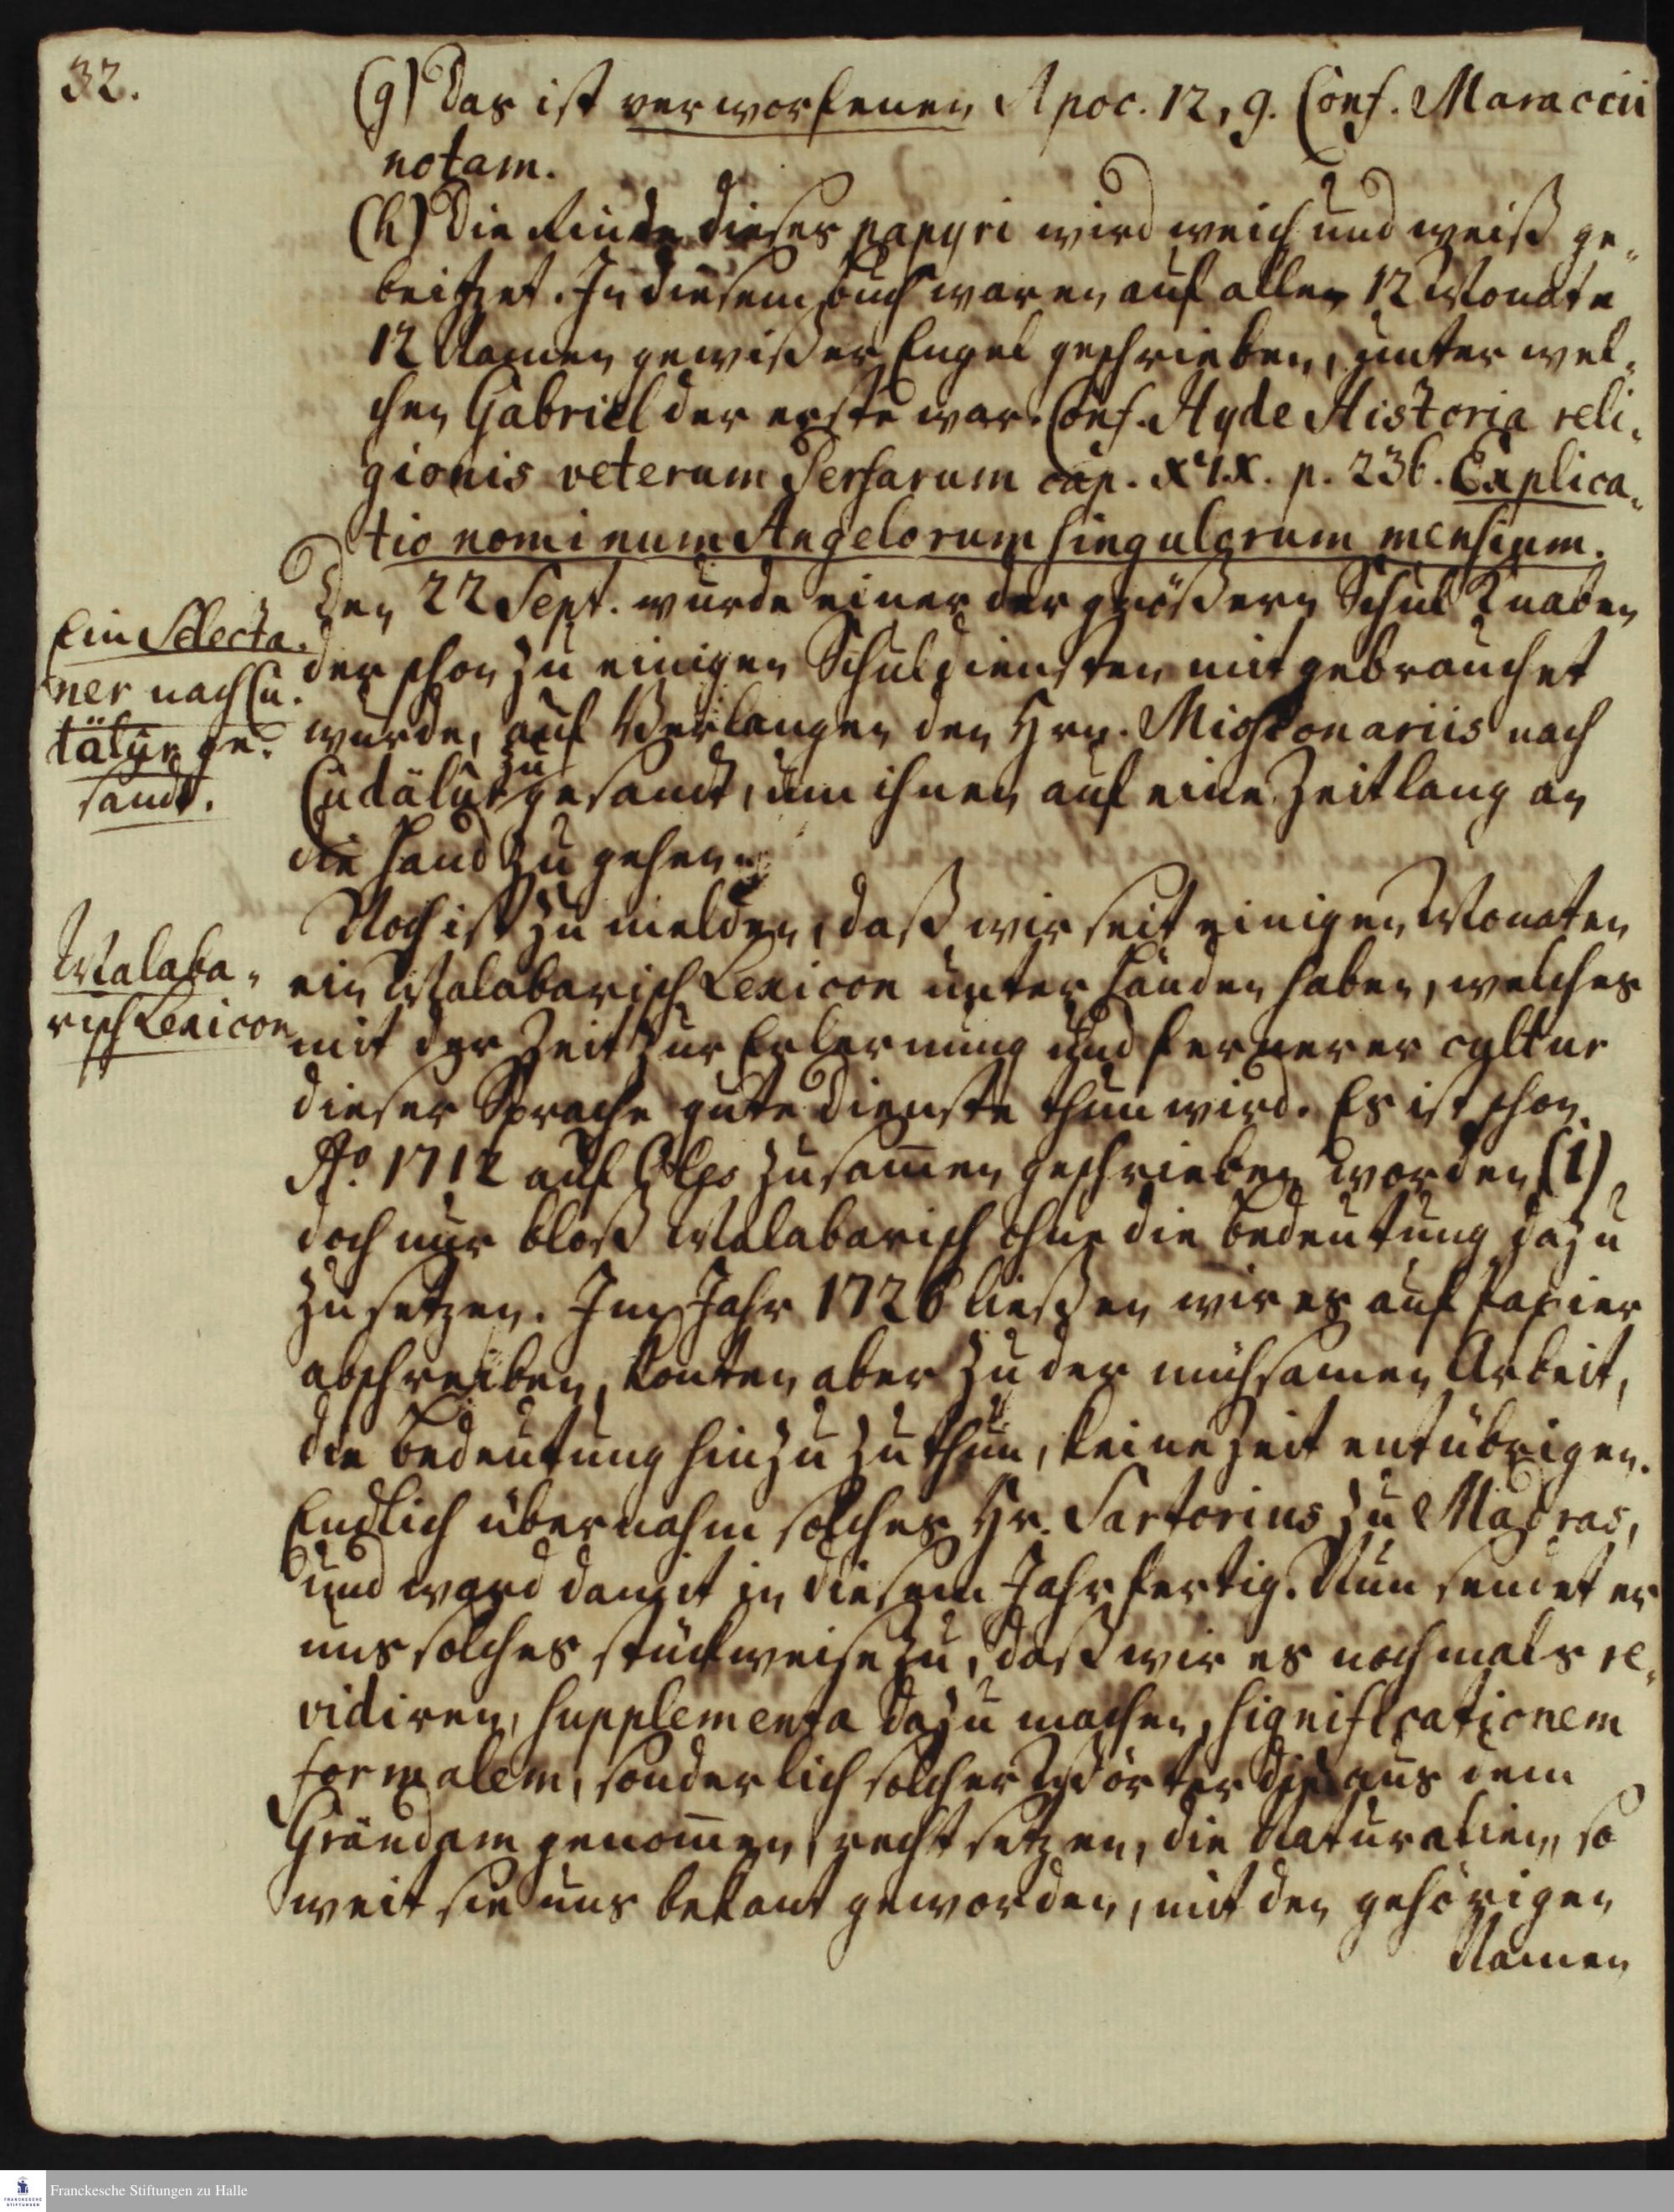 32.
(g) Das ist verworfenen Apoc. 12, 9. Conf. Maraccii
notam.
(h) Die Rinde dieses papyri wird weich und weiß ge-
beitzet. In diesem Buch waren auf allen 12 Monate
12 Namen gewißer Engel geschrieben, unter wel-
chen Gabriel der erste war. Conf. Hyde Historia reli-
gionis veterum Persarum cap. XIX. p. 236. Explica-
tio nominum Angelorum singulorum mensium.
Ein Selecta-
ner nach Cu-
tälur ge-
sandt.
Den 22 Sept. wurde einer der größern Schul Knaben
der schon zu einigen Schuldiensten mit gebrauchet
wurde, auf Verlangen den Hrn. Missionariis nach
Cudälur zu gesandt, um ihnen auf eine Zeitlang an
die Hand zu gehen.
Malaba-
risch Lexicon
Noch ist zu melden, daß wir seit einigen Monaten
ein Malabarisch Lexicon unter Händen haben, welches
mit der Zeit zur Erlernung und fernerer cultur
dieser Sprache gute Dienste thun wird. Es ist schon
Ao. 1712 auf Oles zusam̅en geschrieben worden (i)
doch nur bloß Malabarisch ohne die Bedeutung dazu
zu setzen. Im Jahr 1726 ließen wir es auf Papier
abschreiben, konten aber zu der mühsamen Arbeit,
die Bedeutung hinzu zu thun, keine Zeit entübrigen.
Endlich übernahm solches Hr. Sartorius zu Madras,
und ward damit in diesem Jahr fertig. Nun sendet er
uns solches stückweise zu, daß wir es nochmals re-
vidiren, supplementa dazu machen, significationem
formalem, sonderlich solcher Wörter die aus dem
Grändam genom̅en, recht setzen, die Naturalien, so
weit sie uns bekant geworden, mit den gehörigen
Namen
Franckesche Stiftungen zu Halle